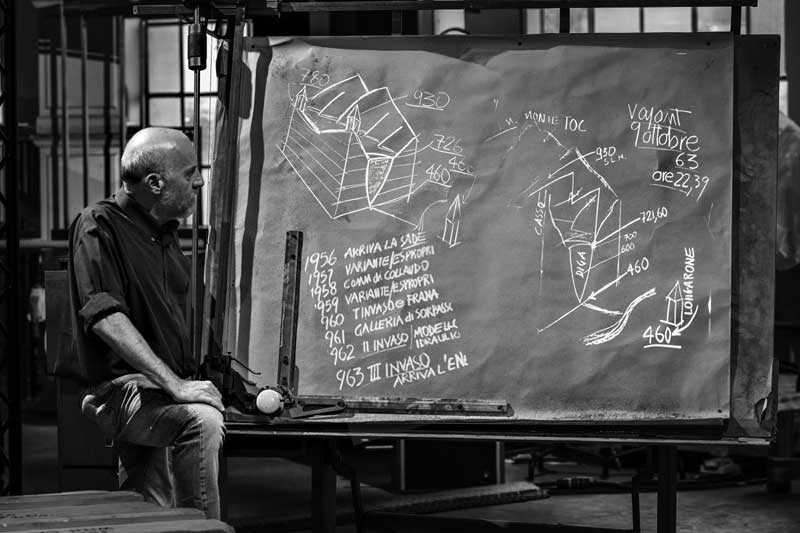 780
930
726
460
1956 ARRIVA LA SADE
1957 VARIANTE/ESPROPRI
1958 COMM DI COLLAUDO
959 VARIANTE/ESPROPRI
960 I INVASO FRANA
961 GALLERIA di SORPASSO
962 II INVASO / MODELLO IDRAULIC
963 III INVASO
ARRIVA L'EN
MONTE TOC
930
S.L.M.
CASSO
DIGA
721,60
700
600
460
VAJONT
9 ottobre
63
ore 22,39
LONGARONE
460